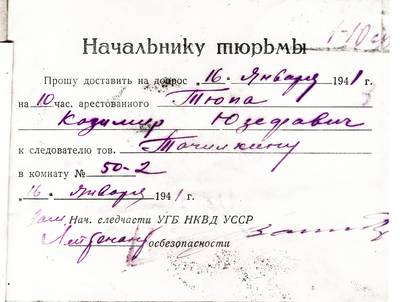 1-10
Начальнику тюрьмы
Прошу доставить на допрос 16 Января 1941 г.
на 10 час. арестованного Тюпа
Казимир Юзефович
к следователю тов. Точилкину
в комнату № 50-2
„16„ января 1941 г.
Зам. Нач. следчасти УГБ НКВД УССР
Лейтенант Госбезопасности